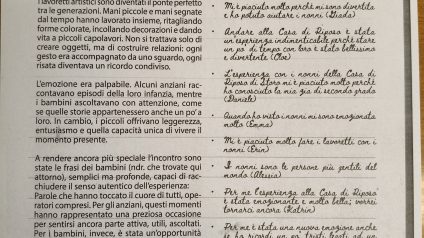 I lavoretti artistici sono diventati il ponte perfetto
tra le generazioni. Mani piccole e mani segnate
dal tempo hanno lavorato insieme, ritagliando
forme colorate, incollando decorazioni e dando
vita a piccoli capolavori. Non si trattava solo di
creare oggetti, ma di costruire relazioni: ogni
gesto era accompagnato da uno sguardo, ogni
risata diventava un ricordo condiviso.
L'emozione era palpabile. Alcuni anziani raccon-
tavano episodi della loro infanzia, mentre
i bambini ascoltavano con attenzione, come
se quelle storie appartenessero anche un po' a
loro. In cambio, i piccoli offrivano leggerezza,
entusiasmo e quella capacità unica di vivere il
momento presente.
A rendere ancora più speciale l'incontro sono
state le frasi dei bambini (ndr. che trovate qui
attorno), semplici ma profonde, capaci di rac-
chiudere il senso autentico dell'esperienza:
Parole che hanno toccato il cuore di tutti, ope-
ratori compresi. Per gli anziani, questi momenti
hanno rappresentato una preziosa occasione
per sentirsi ancora parte attiva, utili, ascoltati.
Per i bambini, invece, è stata un'opportunità
• Mi è piaciuto molto perché mi sono divertita
e ho potuto aiutare i nonni (Giada)
• Andare alla Casa di Riposo è stata
un'esperienza indimenticabile perché stare
un po' di tempo con loro è stato bellissimo
e divertente (Cloe)
• L'esperienza con i nonni della Casa di
Riposo di Storo mi è piaciuta molto perché
ho conosciuto la mia zia di secondo grado
(Daniele)
• Quando ho visto i nonni mi sono emozionata
molto (Emma)
• Mi è piaciuto molto fare i lavoretti con i
nonni (Erin)
• I nonni sono le persone più gentili del
mondo (Alessia)
• Per me l'esperienza alla Casa di Riposo
è stata emozionante e molto bella; vorrei
tornarci ancora (Katrin)
• Per me è stata una nuova emozione anche